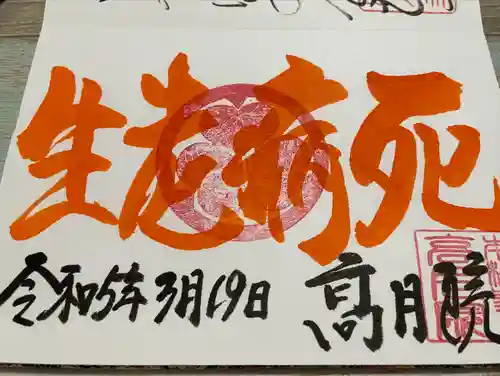 生老病死
令和5年3月19日 高月院